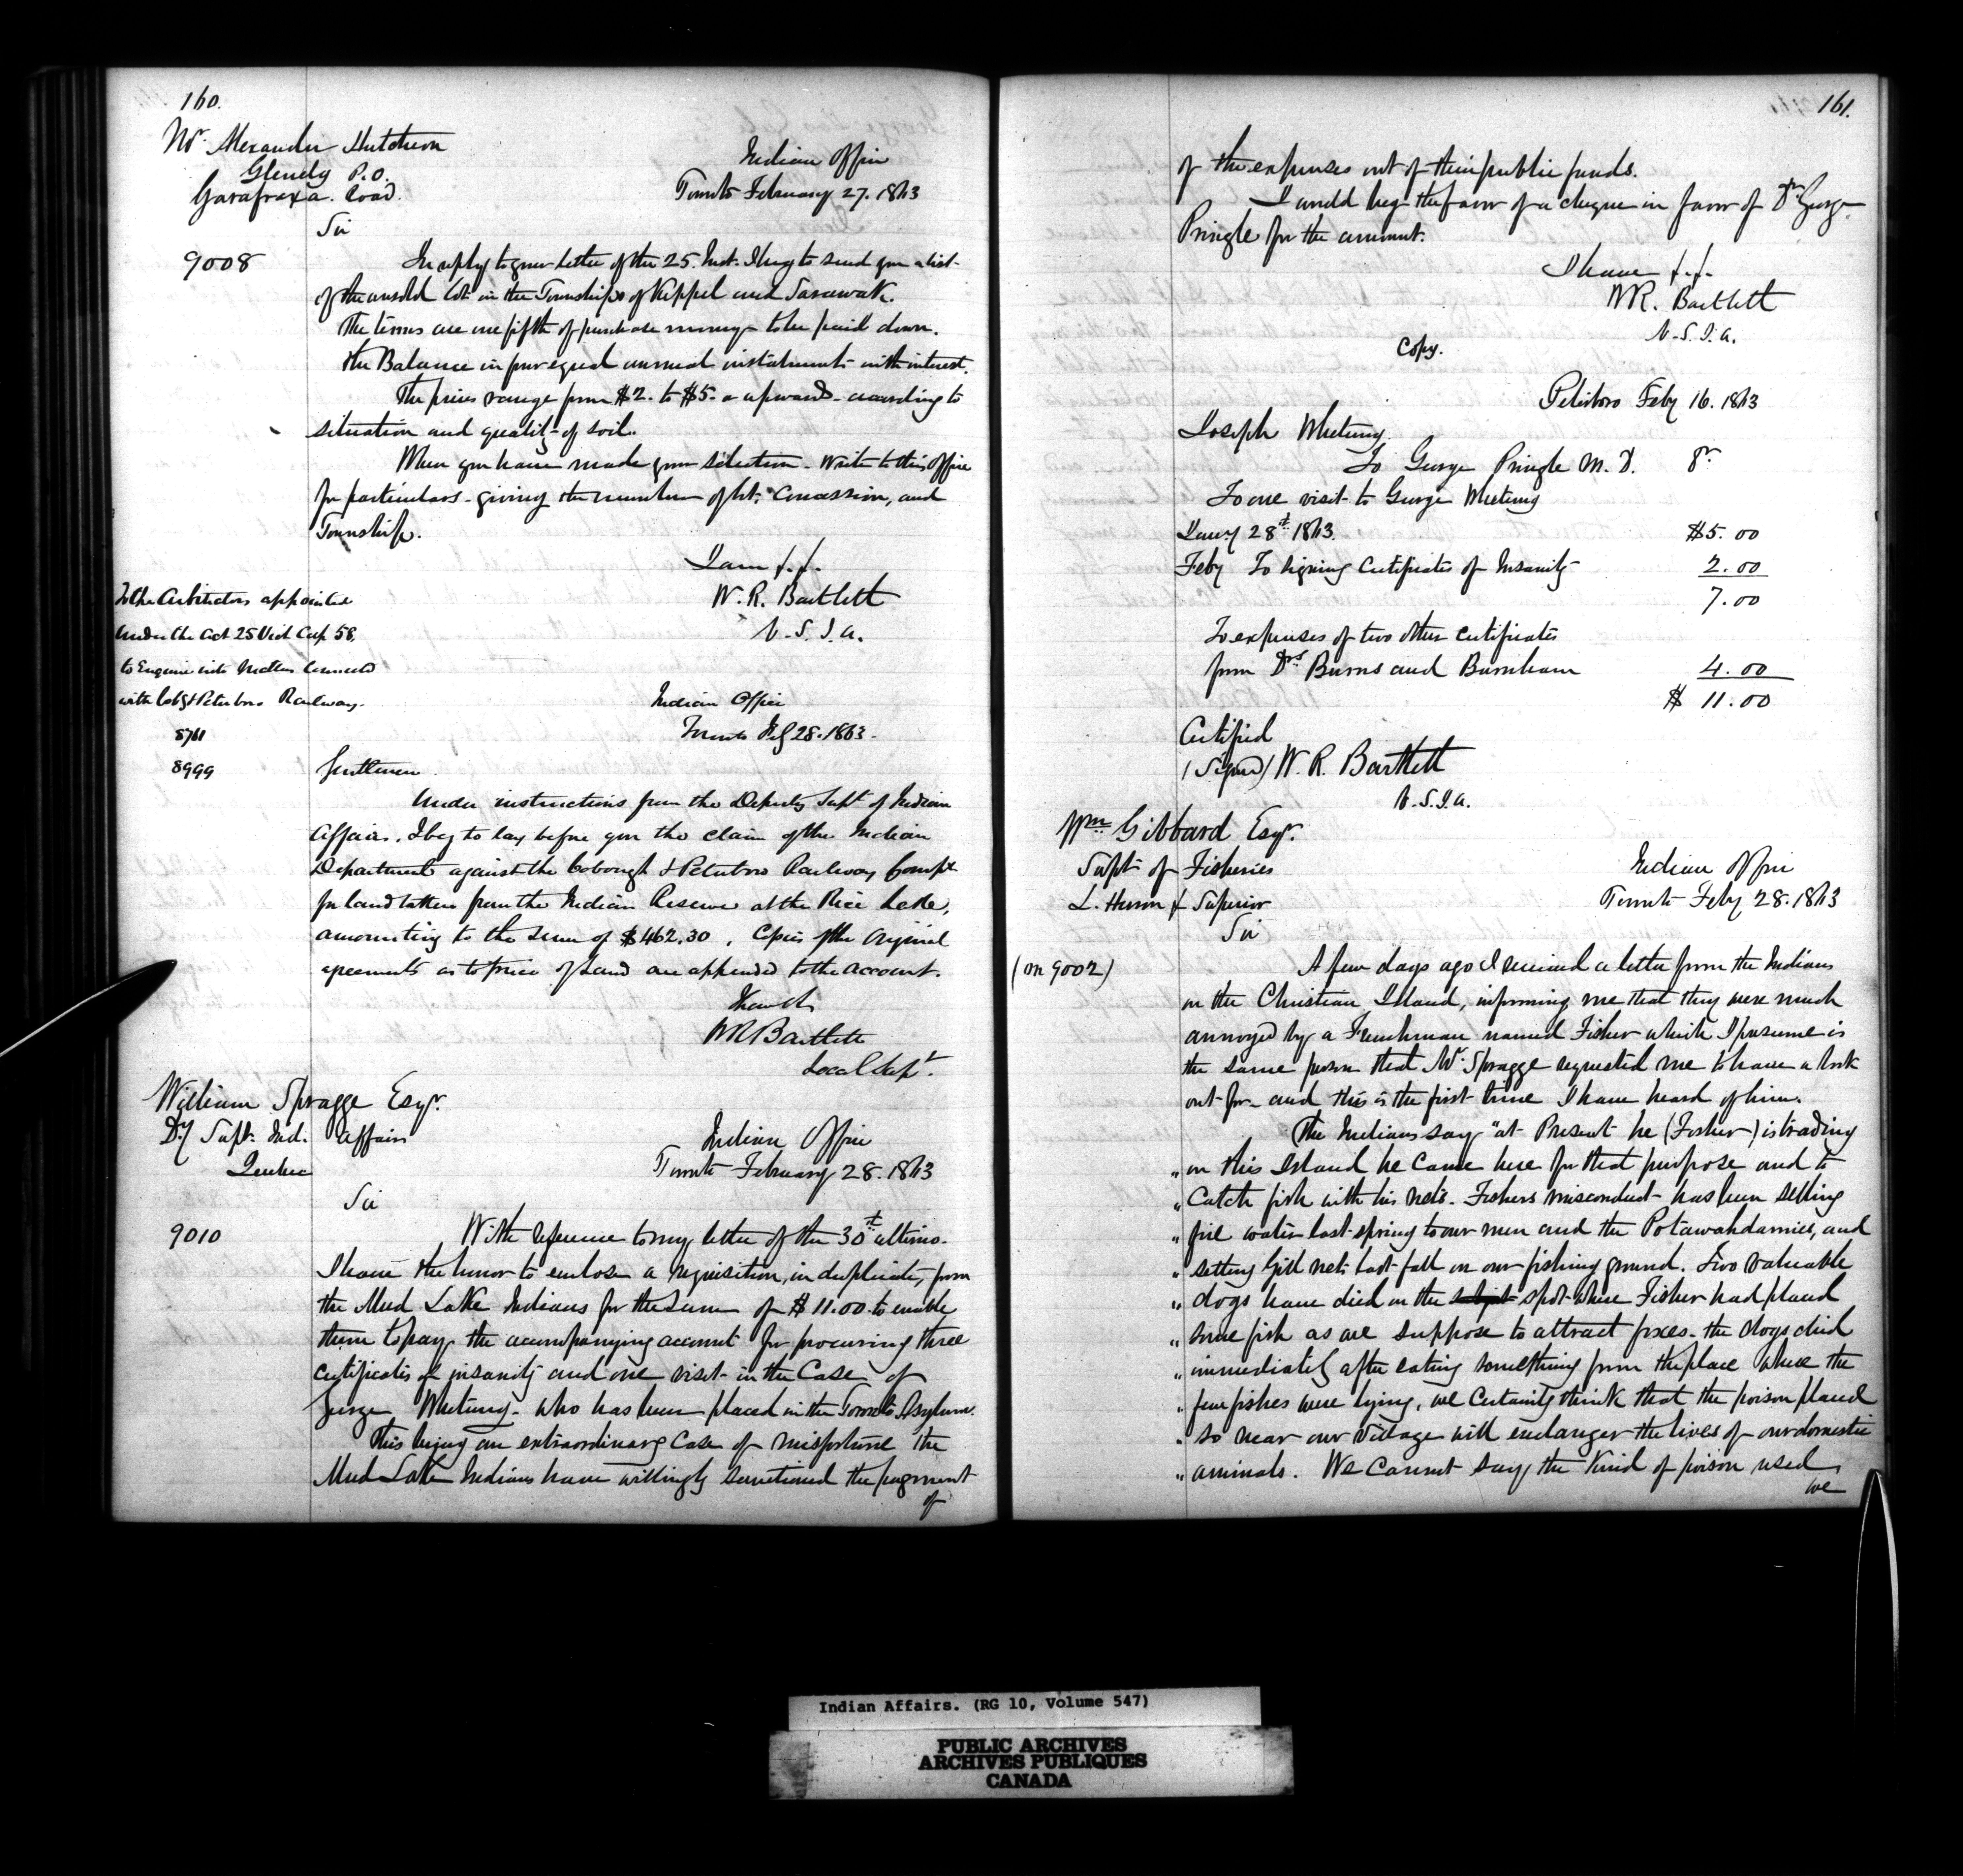 160.
Mr. Alexander Hutcheon
Glendy P.O.
Garafraxa. Road.
Indian Office
Toronto February 27. 1863
Sir
9008
In reply to your letter of the 25. Inst. I beg to send you a list
of the unsold lots in the Townships of Keppel and Sarawak.
The terms are one fifth of purchase money to be paid down.
the Balance in four equal annual instalments with interest.
The prices range from $2. to $5. or upwards according to
situation and quality of soil.
When you have made your selection. Write to this Office
for particulars. giving the number of lot, Concession, and
Township.
I am f.f.
W. R. Bartlett
V.S.I.A.
To the Arbitrators appointed
under the Act 25 Vict Cap 58,
to Enquire into Matters connected
with Cobg & Peterboro Railway.
8761
8999
Indian Office
Toronto Feby 28. 1863.
Gentlemen
Under instructions from the Deputy Supt of Indian
Affairs. I beg to lay before you the claim of the Indian
Department against the Cobourgh & Peterboro Railway Compy
for land taken from the Indian Reserve at the Rice Lake,
amounting to the sum of $462.30, Copies of the Original
agreements as to price of Land are appended to the account.
I have &c
WR Bartlett
Local Supt.
William Spragge Esqr.
Dy Supt. Ind. Affairs
Quebec
Indian Office
Toronto February 28. 1863
Sir
9010
With reference to my letter of the 30th ultimo.
I have the honor to enclose a requisition, in duplicate, from
the Mud Lake Indians for the sum of $11.00 to enable
them to pay the accompanying account for procuring three
certificates of insanity and one visit in the Case of
George Whetung. who has been placed in the Toronto Asylum.
This being an extraordinary Case of misfortune the
Mud Lake Indians have willingly sanctioned the payment
of
161.
of the expenses out of their public funds.
I would beg the favor of a cheque in favor of Dr George
Pringle for the amount.
I have f.f.
WR. Bartlett
V.S.I.A.
Copy.
Peterboro Feby 16. 1863
Joseph Whetung.
To George Pringle M.D. Dr
To one visit to George Whetung
Jany 28th 1863. $5.00
Feby To signing Certificates of Insanity 2.00
7.00
To expenses of two other Certificates
from Drs Burns and Burnham 4.00
$ 11.00
Certified
(Signed) W. R. Bartlett
V.S.I.A.
Wm Gibbard Esqr.
Supt of Fisheries
L. Huron & Superior
Indian Office
Toronto Feby 28. 1863
Sir
(on 9002)
A few days ago I received a letter from the Indians
on the Christian Island, informing me that they were much
annoyed by a Frenchman named Fisher which I presume is
the same person that Mr. Spragge requested me to have a look
out for. and this is the first time I have heard of him.
The Indians say "at Present he (Fisher) is trading
" on this Island he came here for that purpose and to
" Catch fish with his nets. Fishers misconduct has been selling
" fire water last spring to our men and the Potawahdamies, and
" setting Gill nets last fall on our fishing ground. Two valuable
" dogs have died on the spot where Fisher had placed
" some fish as we suppose to attract foxes. the dogs died
" immediately after eating something from the place where the
" few fishes were lying, we Certainly think that the poison placed
" so near our Village will endanger the lives of our domestic
" animals. We Cannot say the Kind of poison used
we
Indian Affairs. (RG 10, Volume 547)
PUBLIC ARCHIVES
ARCHIVES PUBLIQUES
CANADA